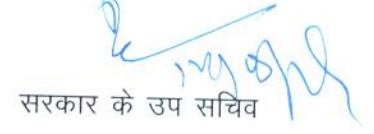 सरकार के उप सचिव